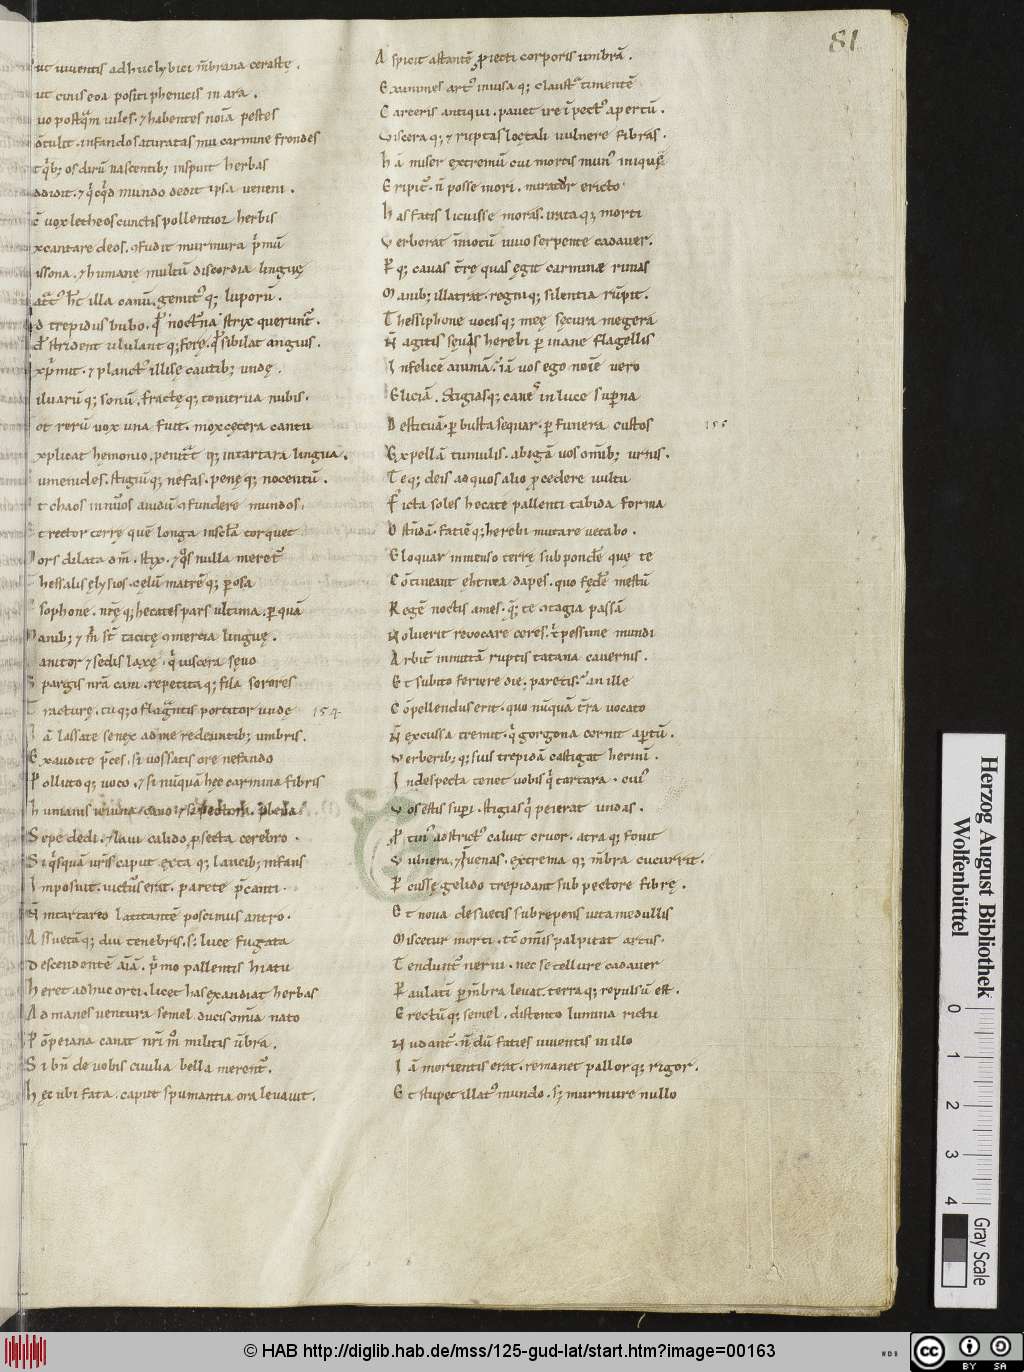 81
ut viventis adhuc lybici m̄brana cerastę .
ut cinis eoa positi phenicis in ara .
uo postq̄m viles . ⁊ habentes noīa pestes
infando saturatas mu carmine frondes
os dirū nascentib; inspuit herbas
ddidit . ⁊ mundo dedit ipsa veneni .
vox letheos cunctis pollentior herbis
xcantare deos . murmura p̄mū
issona . ⁊ humanę multū discordia linguę
illa canū . gemit᾽ q; luporū .
d trepidus bubo . noct᾽na strix querunt᾽ .
strident ululantq; ferę . sibilat anguis .
⁊ planct᾽ illisę cautib; undę .
iluarūq; sonū . fractęq; tonitrua nubis .
ot rerū vox una fuit . mox cęcera cantu
xplicat hęmonio . penit᾽tq; intartara lingua .
umenides . stigiūq; nefas . penęq; nocentū .
t chaos innūos avidū ꝯfundere mundos .
t rector terrę quē longa insclā torquet
ors dilata dm̄ . stix . nulla meret᾽
hessalis ęlysios . cęlū matrēq; perosa
sophone . nr̄ęq; hecates pars ultima . per quā
anib; ⁊ tacitę ꝯmercia linguę .
anitor ⁊ sedis laxę . viscera sęvo
S pargis nr̄a cani . repetitaq; fila sorores
T racturę . tuq; o flag᾽ntis portitor undę 154
ā lassate senex ad me redeuntib; umbris .
E xaudite p̄ces . si vos satis ore nefando
P ollutoq; voco . ⁊ si nūquā hęc carmina fibris
h umanis ieiuna cano . pectora plena
S epe dedi . ⁊ lavi calido prosecta cerebro .
S i q̄squā caput extaq; lancib; infans
I mposuit . victurus erat . parete p̄canti .
N intartareo latitantē poscimus antro .
A ssuetāq; diu tenebris . s; luce fugata
D escendentē aīā . p̄mo pallentis hiatu
h eret adhuc orci . licet has exaudiat herbas
A d manes ventura semel ducis omīa nato
P ōpeiana canat nr̄i militis ūbra .
S i bn̄ de vobis civilia bella merent᾽ .
h ęc ubi fata . caput spumantia ora levavit .
A spicit astantē proiecti corporis umbrā .
E xanimes art᾽ invisaq; claustra timentē
C arceris antiqui . pavet ire ī pect᾽ apertū .
V isceraq; ⁊ ruptas lętali vulnere fibras .
h ā miser extremū cui mortis mun᾽ inique
E ripit᾽ . n̄ posse mori . miratur ericto
h as fatis licuisse moras . irataq; morti
V erberat īmotū vivo serpente cadaver .
P q; cavas quas ęgit carmine rimas
M anib; illatrat . regniq; silentia rūpit .
T hessiphone vocisq; meę sęcura megera
N agitis sęvis herebi per inane flagellis
I nfelicē animā . iā vos ego noīe vero
E liciā . Stigiasq; canes in luce superna
D estituā . per busta sequar . per funera custos 155
E xpellā tumulis . abigā vos om̄ib; urnis .
T eq; deis ad quos alio procedere vultu
F icta soles hecate pallenti tabida forma
O stn̄dā . faciēq; herebi mutare vetabo .
E loquar inmenso terrę sub pondere quę te
C ōtineant ęhtnea dapes . quo fędere mestū
R egē noctis ames . te ꝯtagia passā
N oluerit revocare ceres . pessime mundi
A rbit᾽ inmittā ruptis titana cavernis .
E t subito feriere die . paretis . an ille
C ōpellendus erit . quo nūquā t᾽ra vocato
N excussa tremit . q̄ gorgona cernit ap᾽tū .
V erberib;q; suis trepidā castigat herinī .
I ndespecta tenet vobis q̄ tartara . cui᾽
V os estis superi . stigias q̄ peierat undas .
adstrict᾽ caluit cruor . atraq; fovit
V ulnera . ⁊ venas . extremaq; m̄bra cucurrit .
P ercussę gelido trepidant sub pectore fibrę .
E t nova desuetis subrepens vita medullis
M iscetur morti . omis palpitat artus .
T endunt᾽ nervi . nec se tellure cadaver
P aulatī per m̄bra levat . terraq; repulsū est .
E rectūq; semel . distento lumina rictu
N udant᾽ . n̄ dū facies viventis in illo
I ā morientis erat . remanet pallorq; rigor .
E t stupet illat᾽ mundo . s; murmure nullo
Herzog August Bibliothek
Wolfenbüttel
0
1
2
3
4
Gray Scale
© HAB http://diglib.hab.de/mss/125-gud-lat/start.htm?image=00163
cc BY SA